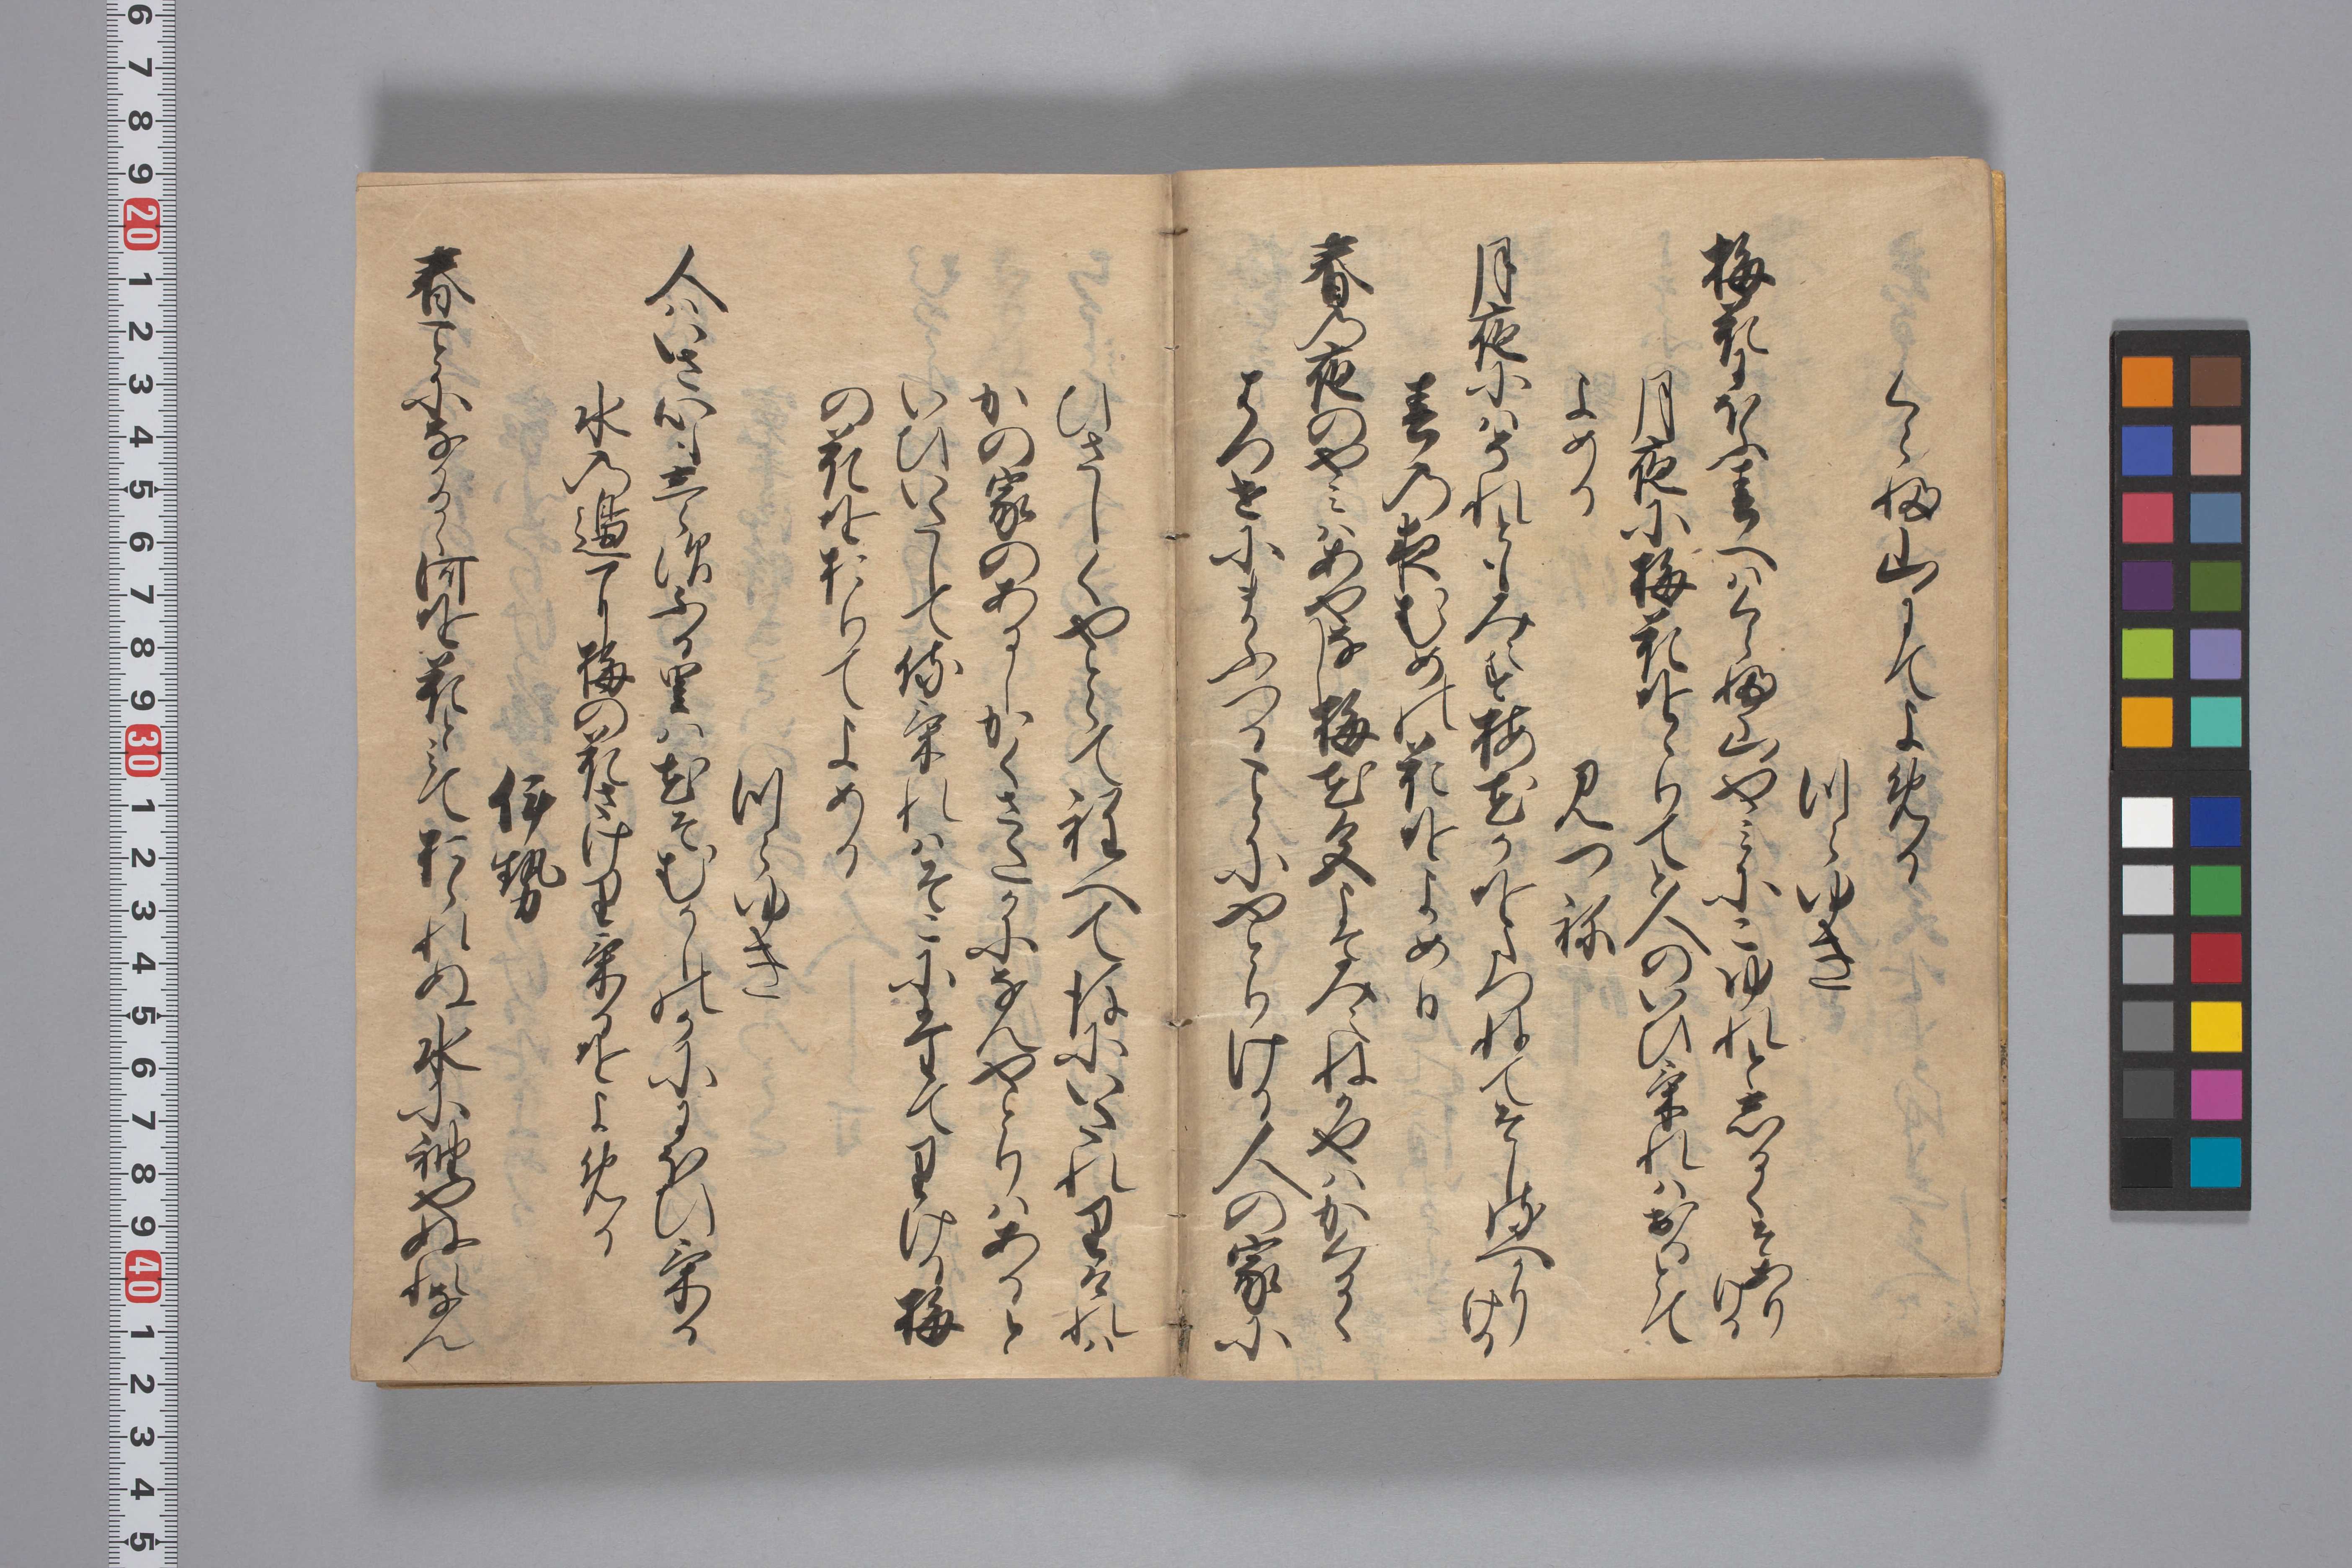 くらふ山にてよめる
つらゆき
梅花にほふ春へはくらふ山やみにこゆれとしるくそありける
月夜に梅花をおりてと人のいひけれはおるとて
よめる
みつね
月夜にはそれともみえす梅花かをたつねてそしるへかりける
春の夜むめの花をよめる
春の夜のやみはあやなし梅花色こそみえねかやはかくるゝ
はつせにまうつることにやとりける人の家に
ひさしくやとらて程へてのちにいたれりけれは
かの家のあるしかくさたかになんやとりはあると
いひいたして侍けれはそこにたてりける梅
の花をおりてよめる
つらゆき
人はいさ心もしらすふる里は花そむかしのかににほひける
水の邊に梅の花さけりけるをよめる
伊勢
春ことになかるゝ河を花とみておられぬ水に袖やぬれなん
6 7 8 9 20 1 2 3 4 5 6 7 8 9 30 1 2 3 4 5 6 7 8 9 40 1 2 3 4 5